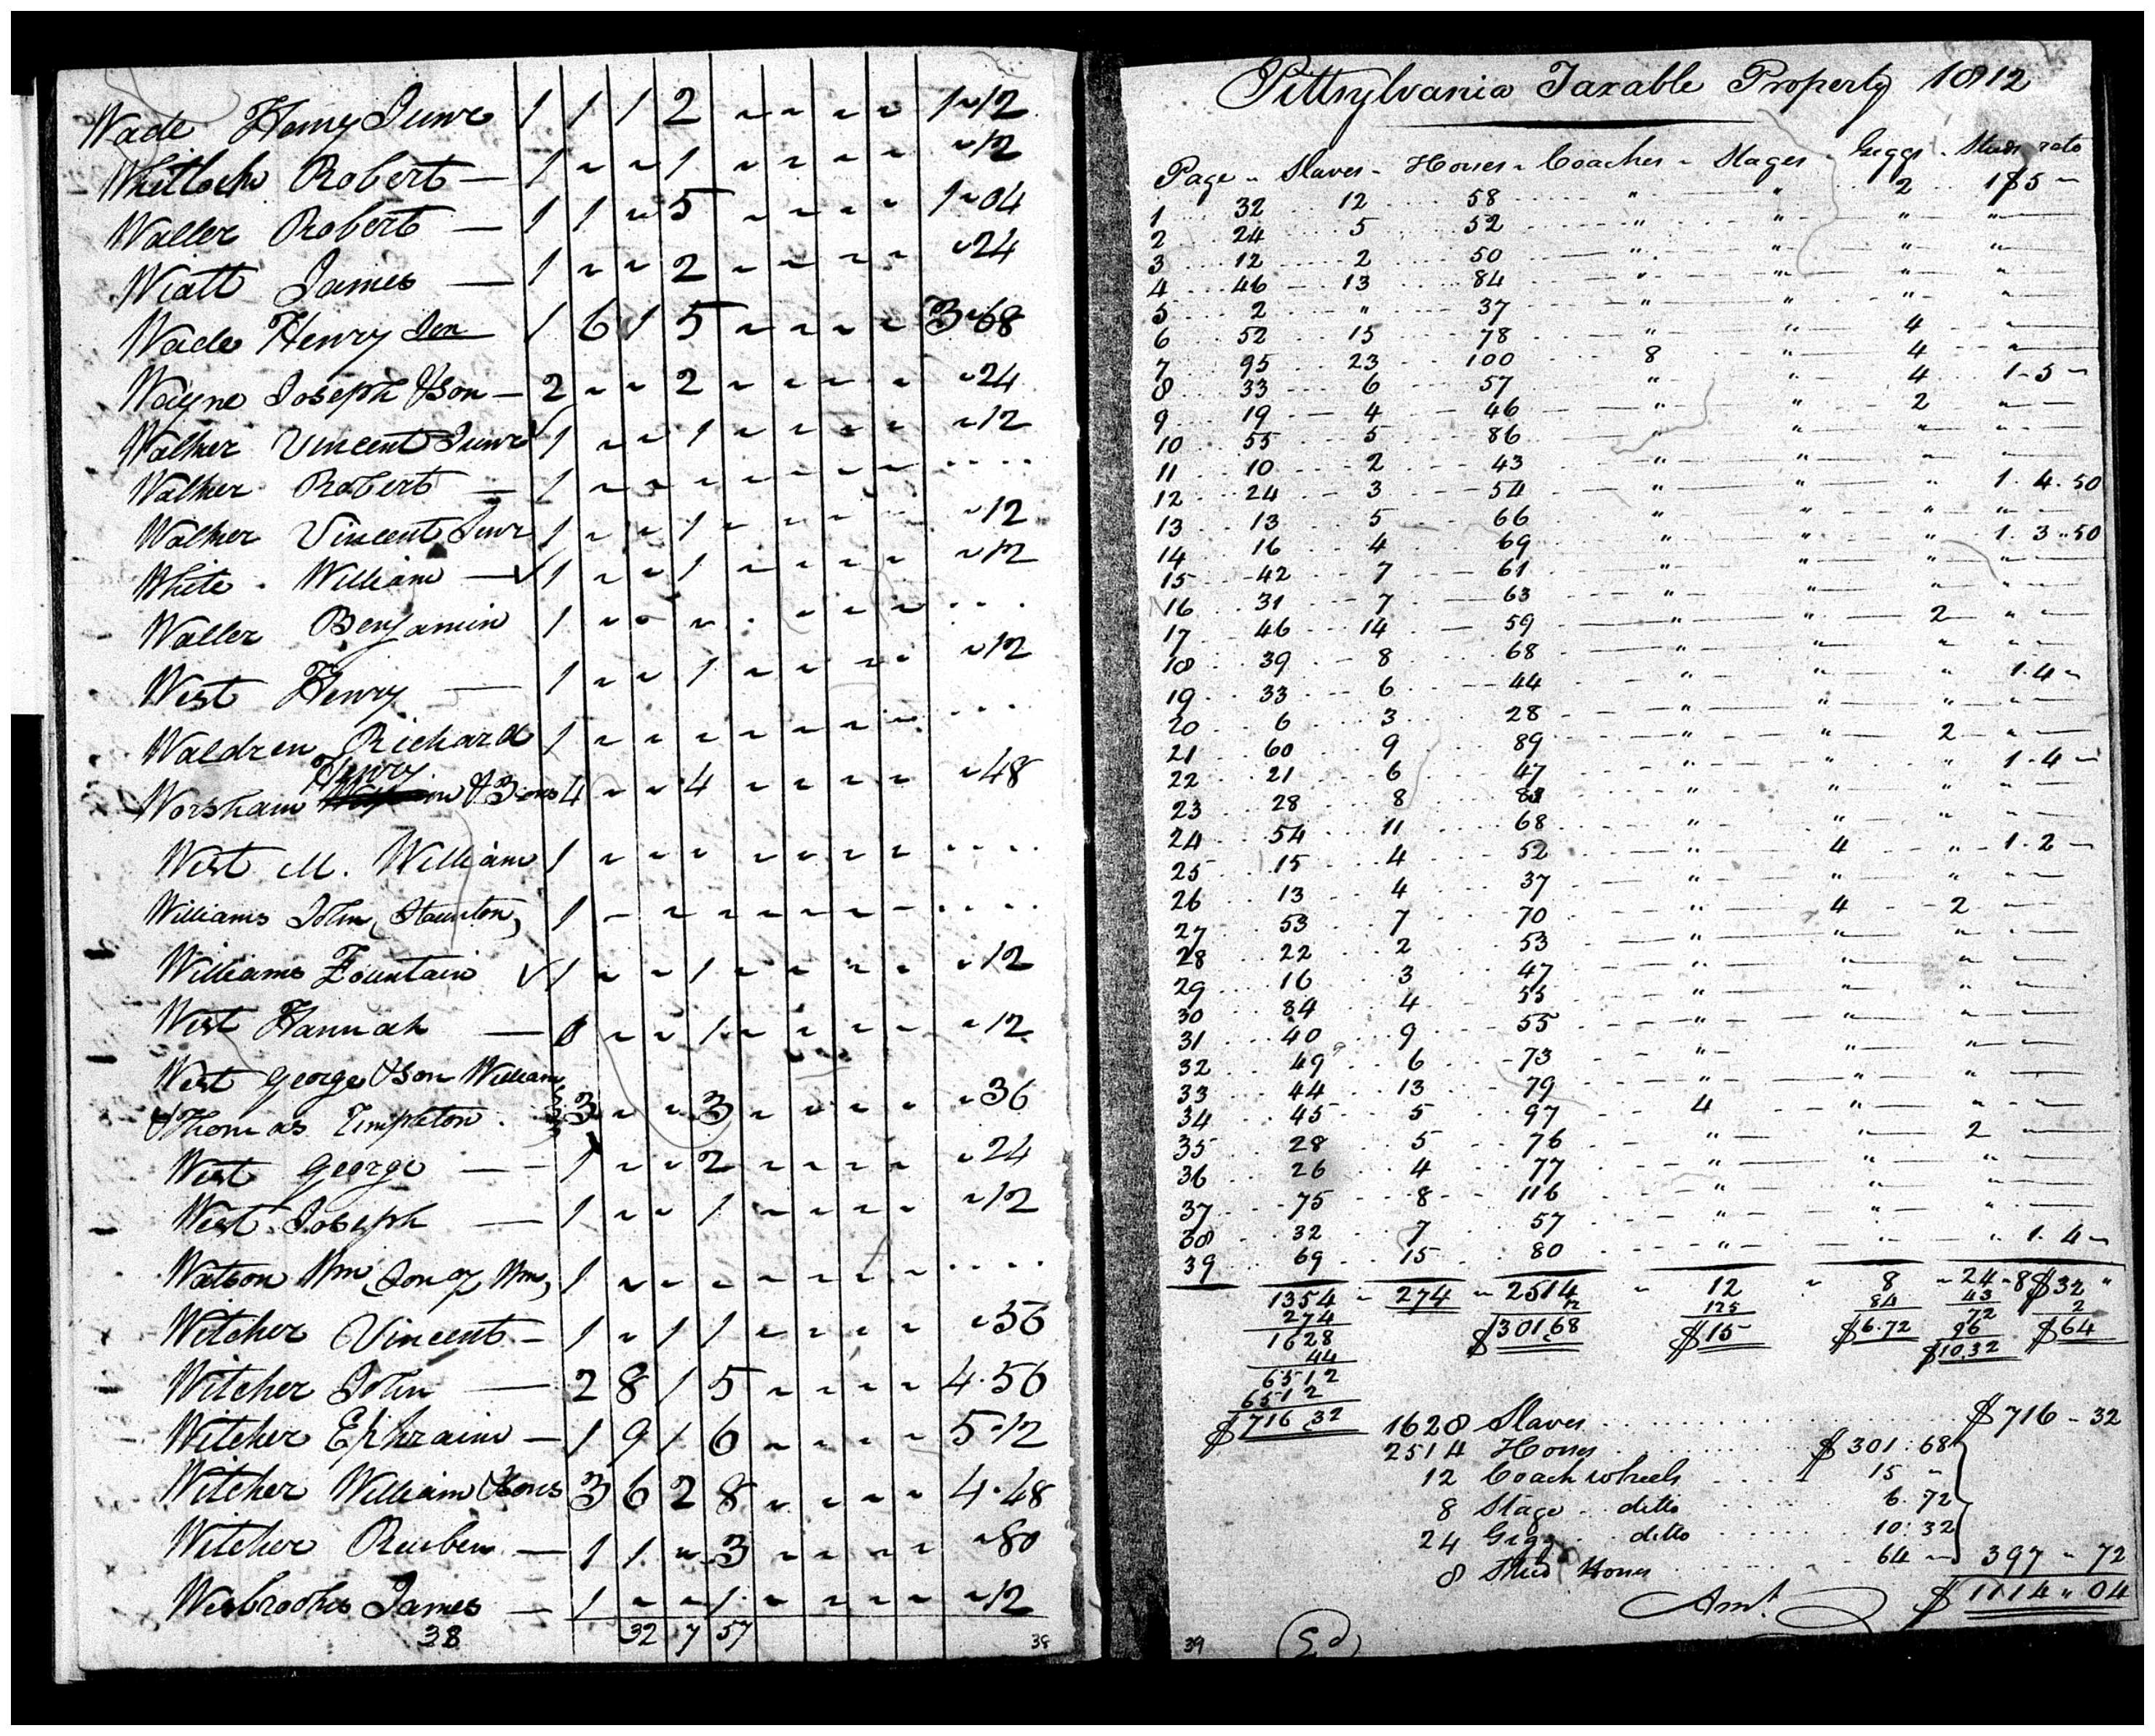 Wade Henry Junr 1 1 1 2 " " " " 1"12
Whitlocke Robert — 1 " " 1 " " " " "12
Waller Robert — 1 1 " 5 " " " " 1"04
Wiatt James — 1 " " 2 " " " " "24
Wade Henry Sen 1 6 1 5 " " " " 3"68
Wayne Joseph & son — 2 " " 2 " " " " "24
Walker Vincent Junr √ 1 " " 1 " " " " "12
Walker Robert — 1 " " " " " " " ....
Walker Vincent Junr 1 " " 1 " " " " "12
White William — √ 1 " " 1 " " " " "12
Waller Benjamin 1 " " " . " " " ....
West Henry — 1 " " 1 " " " " "12
Waldren Richard 1 " " " " " " " ....
Henry
Worsham & 3 sons 4 " " 4 " " " " "48
West M. William 1 " " " " " " " ....
Williams John (Staunton) 1 " " " " " " " ....
Williams Fountain √ 1 " " 1 " " " " "12
West Hannah — 0 " " 1 " " " " "12
West George & son William
& Thomas Timpleton 3 " " 3 " " " " "36
West George — 1 " " 2 " " " " "24
West Joseph — 1 " " 1 " " " " "12
Watson Wm (son of Wm) 1 " " " " " " " ....
Witcher Vincent — 1 " 1 1 " " " " "56
Witcher John — 2 8 1 5 " " " " 4.56
Witcher Ephraim — 1 9 1 6 " " " " 5"12
Witcher William & sons 3 6 2 8 " " " " 4.48
Witcher Reuben — 1 1 " 3 " " " " "80
Wesbrooks James — 1 " " 1 " " " " "12
38 32 7 57 38
Pittsylvania Taxable Property 1812
Page " Slaves - Horses - Coaches - Stages - Giggs - Studs rate
1 32 12 58 " " 2 1 $5 "
2 24 5 52 " " " "
3 12 2 50 " " " "
4 46 13 84 " " " "
5 2 " 37 " " " "
6 52 15 78 " " 4 "
7 95 23 100 8 " 4 "
8 33 6 57 " " 4 1-5 "
9 19 4 46 " " 2 "
10 55 5 86 " " " "
11 10 2 43 " " " "
12 24 3 54 " " " 1.4.50
13 13 5 66 " " " "
14 16 4 69 " " " 1.3"50
15 42 7 61 " " " "
16 31 7 63 " " " "
17 46 14 59 " " 2 "
18 39 8 68 " " " "
19 33 6 44 " " " 1.4 "
20 6 3 28 " " " "
21 60 9 89 " " 2 "
22 21 6 47 " " " 1.4 "
23 28 8 " " " "
24 54 11 68 " " " "
25 15 4 52 " 4 " 1.2 "
26 13 4 37 " " " "
27 53 7 70 " 4 2 "
28 22 2 53 " " " "
29 16 3 47 " " " "
30 34 4 55 " " " "
31 40 9 55 " " " "
32 49 6 73 " " " "
33 44 13 79 " " " "
34 45 5 97 4 " " "
35 28 5 76 " " 2 "
36 26 4 77 " " " "
37 75 8 116 " " " "
38 32 7 57 " " " "
39 69 15 80 " " " 1.4 "
1354 " 274 " 2514 " 12 " 8 " 24 - 8 $32 "
274 12 125 84 43 2
1628 $301.68 $15 $6.72 72 $64
44 96
6512 $10.32
6512
$716.32
1628 Slaves $716 - 32
2514 Horses $301:68
12 Coach wheels 15 "
8 Stage ditto 6.72
24 Gigg ditto 10:32
8 Stud Horses 64 " 397 " 72
Amt $1114 " 04
39